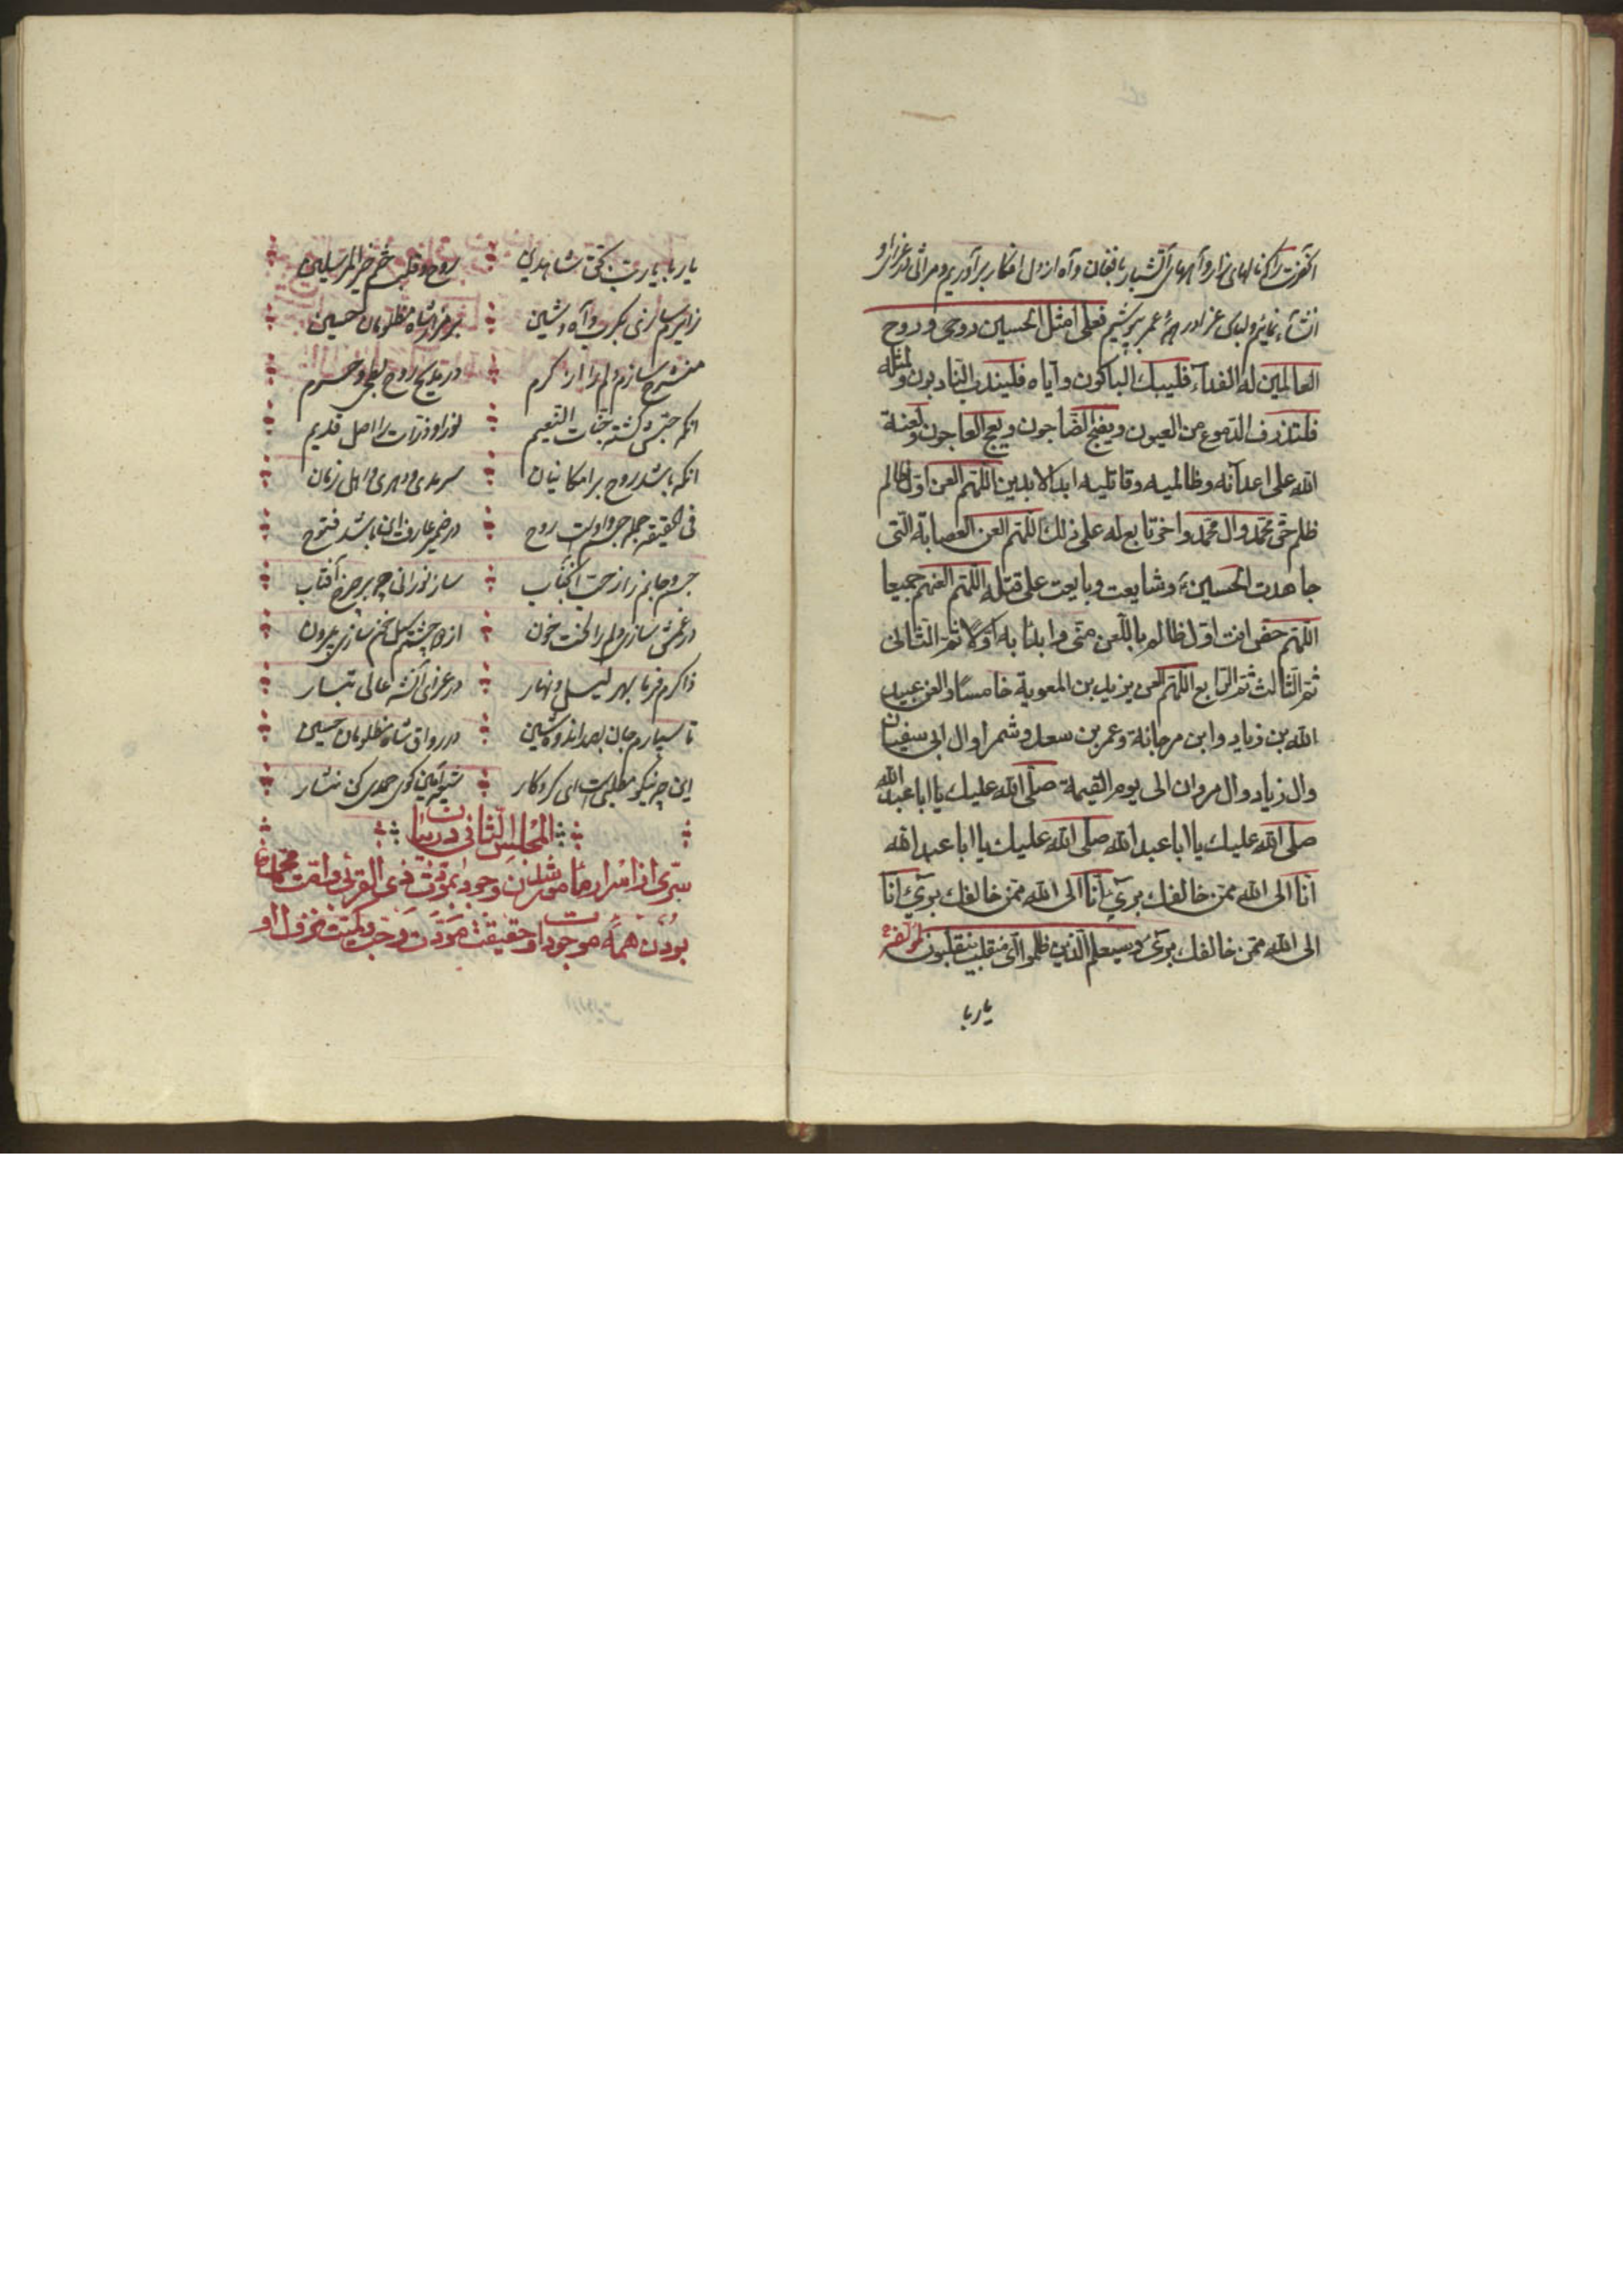 آنحضرت را که نالهای زار و آههای آتشبار با فغان و آه از دل افکار برآوریم و مراثی در عزای او
انشاء نمائیم و لباس عزا در همهٔ عمر بپوشیم فعلی امثل الحسین روحی و روح
العالمین له الفدآء فلیبك الباکون و آیاه فلیندب النادبون و لمثله
فلتذرف الدّموع من العیون و یضج الضّاجون و یعج العاجون و لعنة
الله علی اعدآئه و ظالمیه و قاتلیه ابد الابدین اللّهم العن اوّل ظالم
ظلم حقّ محمّد و ال محمّد و اخر تابع له علی ذلك اللّهم العن العصابة الّتی
جاهدت الحسین و شایعت و بایعت علی قتله اللّهم العنهم جمیعا
اللّهم خصّ انت اوّل ظالم باللّعن منّی و ابدأ به اوّلا ثمّ الثّانی
ثمّ الثّالث ثمّ الرّابع اللّهم العن یزید بن المعویة خامسا و العن عبید
الله بن زیاد و ابن مرجانة و عمر بن سعد و شمرا و ال ابی سفیان
و ال زیاد و ال مروان الی یوم القیمة صلّی الله علیك یا ابا عبد الله
صلّی الله علیك یا ابا عبد الله صلّی الله علیك یا ابا عبد الله
انّا الی الله ممّن خالفك بریٓء انّا الی الله ممّن خالفك بریٓء انّا
الی الله ممّن خالفك بریٓء و سیعلم الّذین ظلموا ایّ منقلب ینقلبون لمؤلفه
یا ربا
یا ربا یا ربّ بحقّ شاهدین روح و قلب ختم خیر المرسلین
زایرم سازی بکرب و آه و شین بر مزار شاه مظلومان حسین
منشرح سازم دلم را از کرم در مدایح روح بطحی و حرم
آنکه حبّش گشته جنّات النّعیم نور او ذرّات را اصل قدیم
آنکه باشد روح بر امکانیان سرمدی و دهری و اهل زمان
فی الحقیقه جمله جسم و اوست روح در ضمیر عارف این باشد فتوح
جسم و جانم را ز حبّ آنجناب ساز نورانی چو بر چرخ آفتاب
در غمش سازی دلم را لخت خون از دو چشم سازی برون
ذاکرم فرما بهر لیل و نهار در عزای آنشه عالی تبار
تا سپارم جان بصد اندوه و شین در رواق شاه مظلومان حسین
این چه نیکو مطلبی است ای کردکار آمین کوی حمدی کن نثار
المجلس الثّانی در بیان
سرّی از اسرار مأمور شدن وجود بمودّت ذی القربی و امّت محمّد ص
بودن همهٔ موجودات و حقیقت مودّت و حبّ و کمیّت نزول او